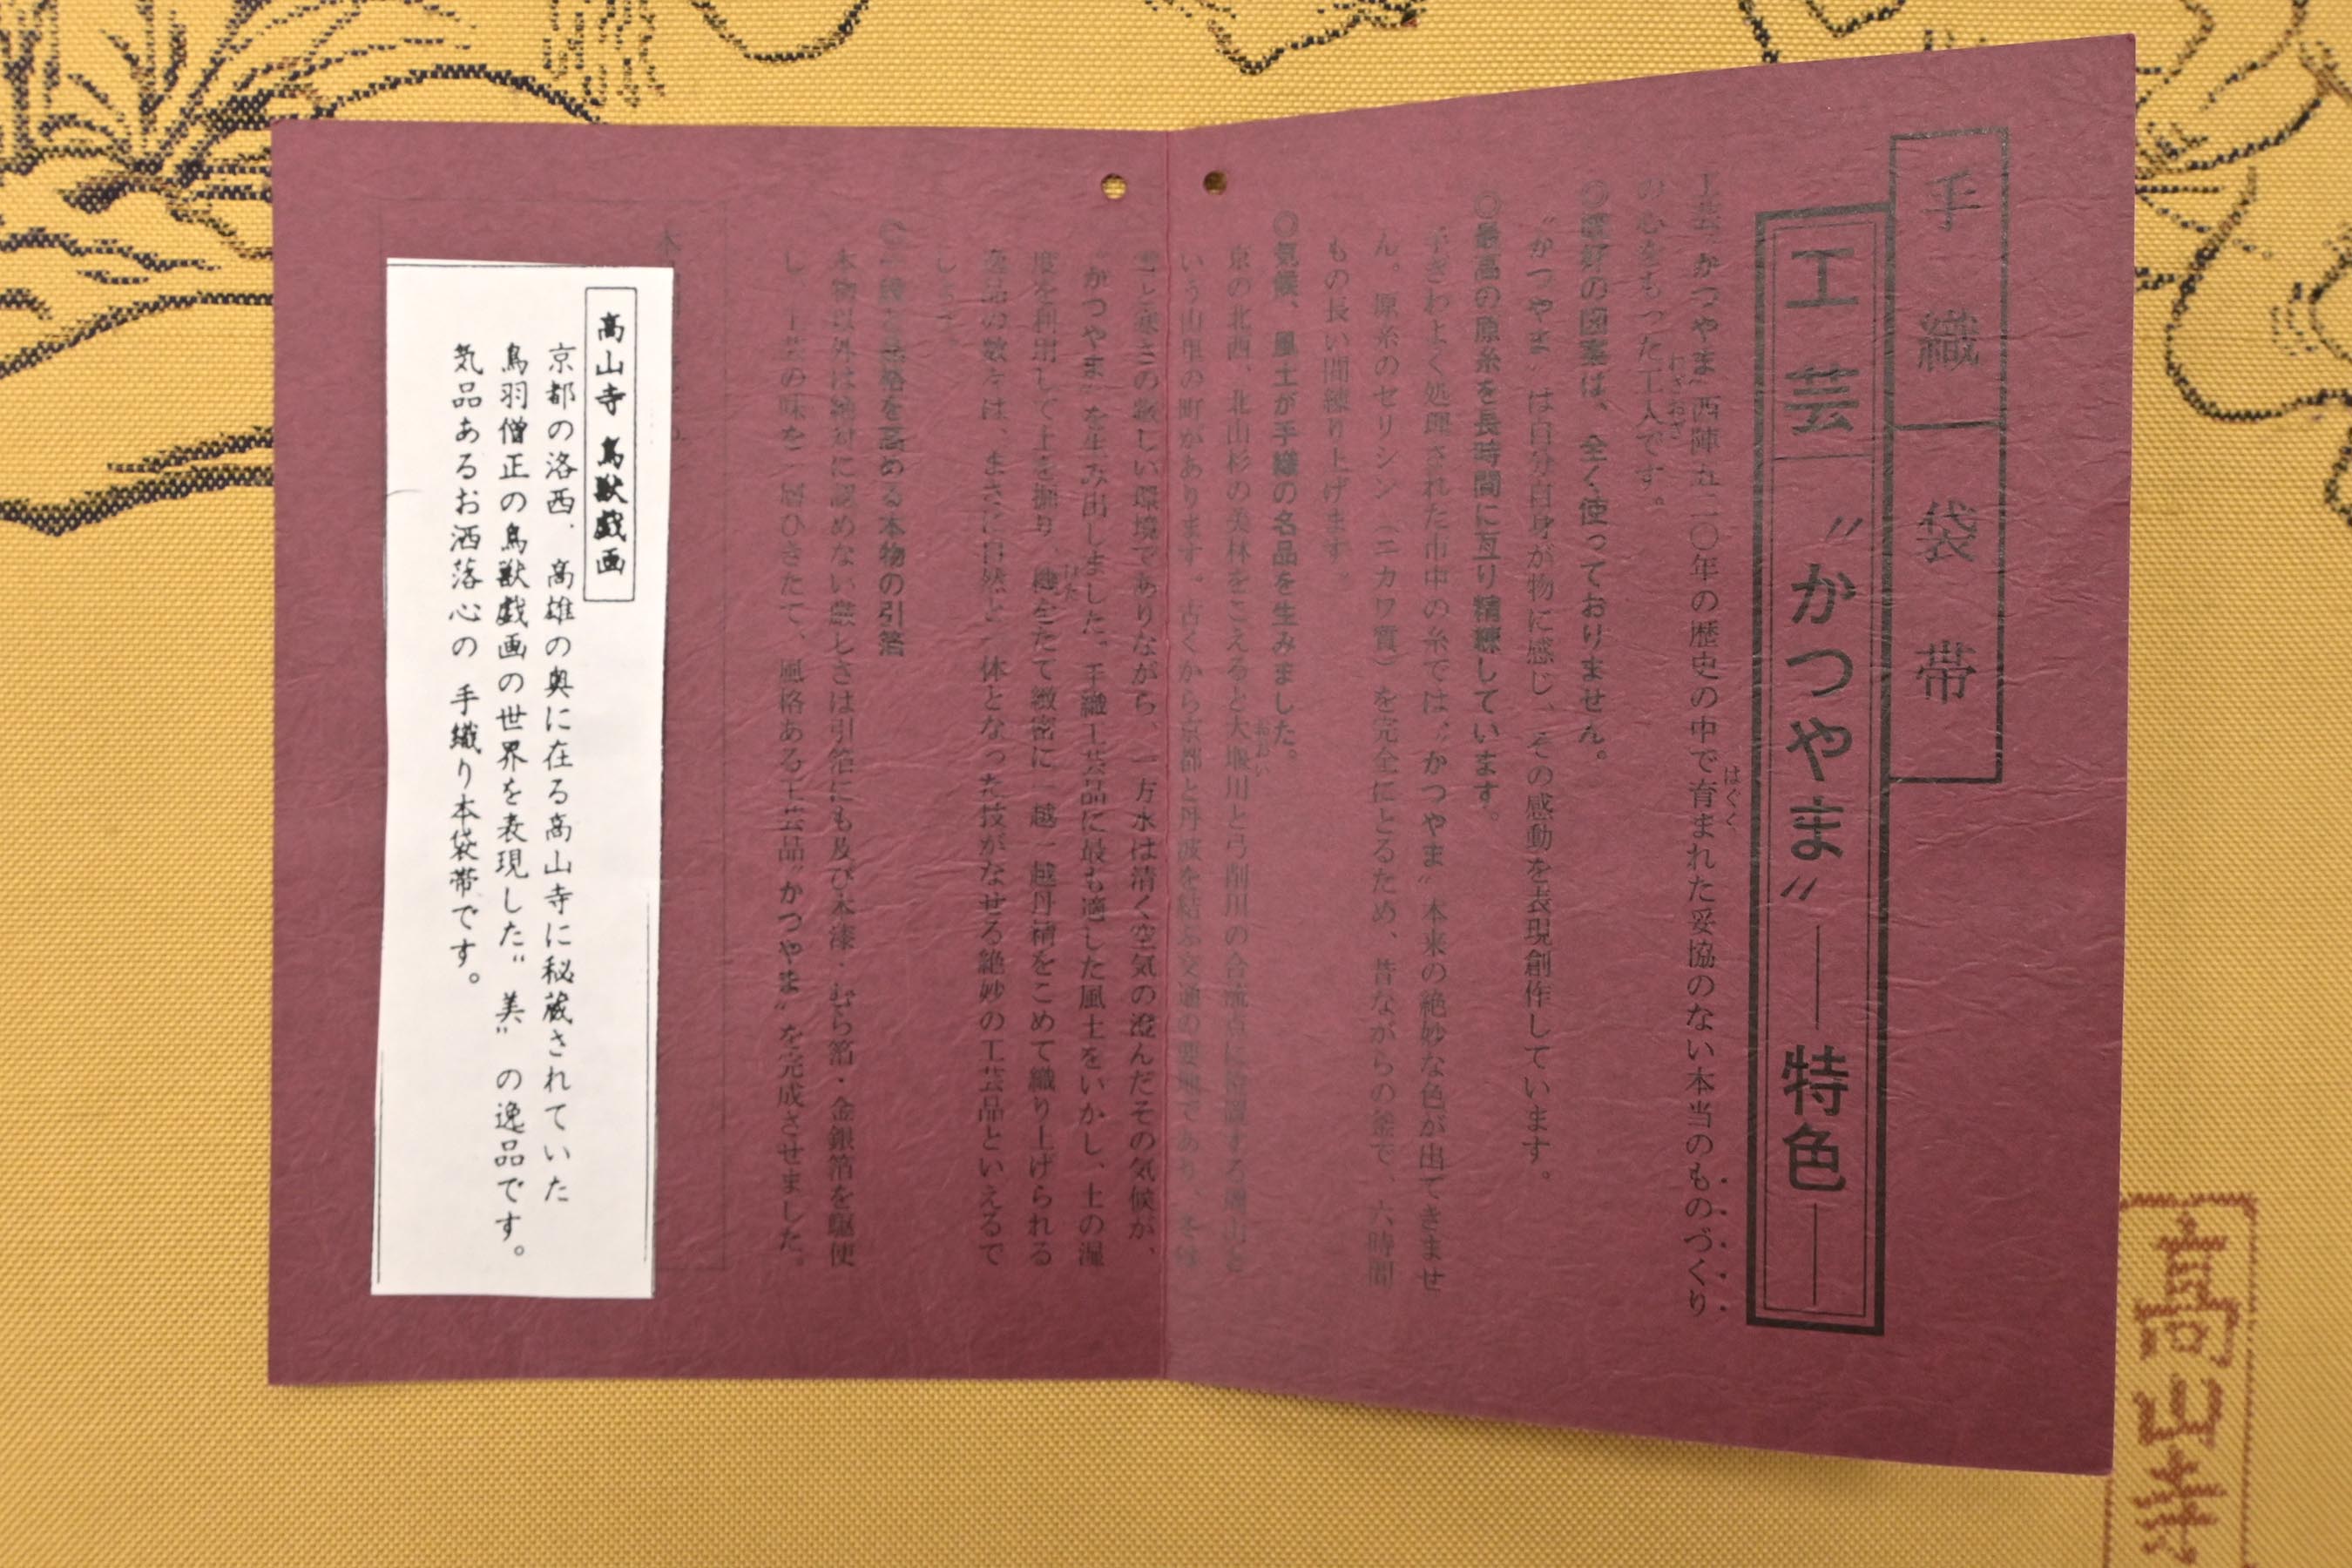 手織袋帯
工芸〝かつやま〟―特色―
工芸〝かつやま〟西陣五二〇年の歴史の中で育まれた妥協のない本当のものづくり
の心をもった工人です。
の図案は、全く使っておりません。
〝かつやま〟は自分自身が物に感じ、その感動を表現創作しています。
◎最高の原糸を長時間に亘り精練しています。
手ぎわよく処理された市中の糸では〝かつやま〟本来の絶妙な色が出てきませ
ん。原糸のセリシン(ニカワ質)を完全にとるため、昔ながらの釜で、六時間
もの長い間練り上げます。
◎気候、風土が手織の名品を生みました。
京の北西、北山杉の美林をこえると大堰川と弓削川の合流点に位置する周山と
いう山里の町があります。古くから京都と丹波を結ぶ交通の要地であり、
の厳しい環境でありながら、一方水は清く空気の澄んだその気候が、
〝かつやま〟を生み出しました。手織工芸品に最も適した風土をいかし、土の湿
度を利用して土を掘り、機をたて緻密に一越一越丹精をこめて織り上げられる
逸品の数々は、まさに自然と一体となった技がなせる絶妙の工芸品といえるで
しょう。
品格を高める本物の引箔
本物以外は絶対に認めない厳しさは引箔にも及び本漆・むら箔・金銀箔を駆使
し、工芸の味を一層ひきたて、風格ある工芸品〝かつやま〟を完成させました。
高山寺 鳥獣戯画
京都の洛西、高雄の奥に在る高山寺に秘蔵されていた
鳥羽僧正の鳥獣戯画の世界を表現した〝美〟の逸品です。
気品あるお洒落心の手織り本袋帯です。
高山寺